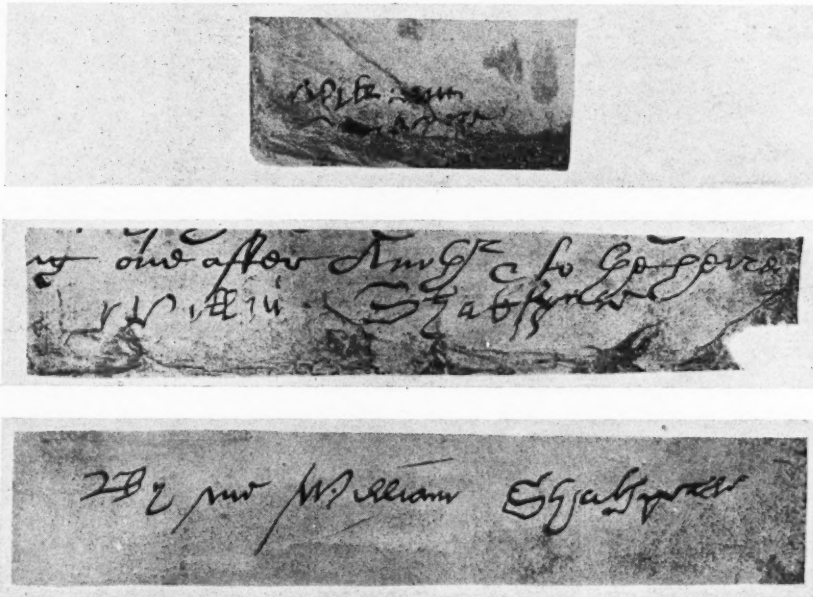 William
one after Anothr to
Willm Shakspere
By me William Shakspeare